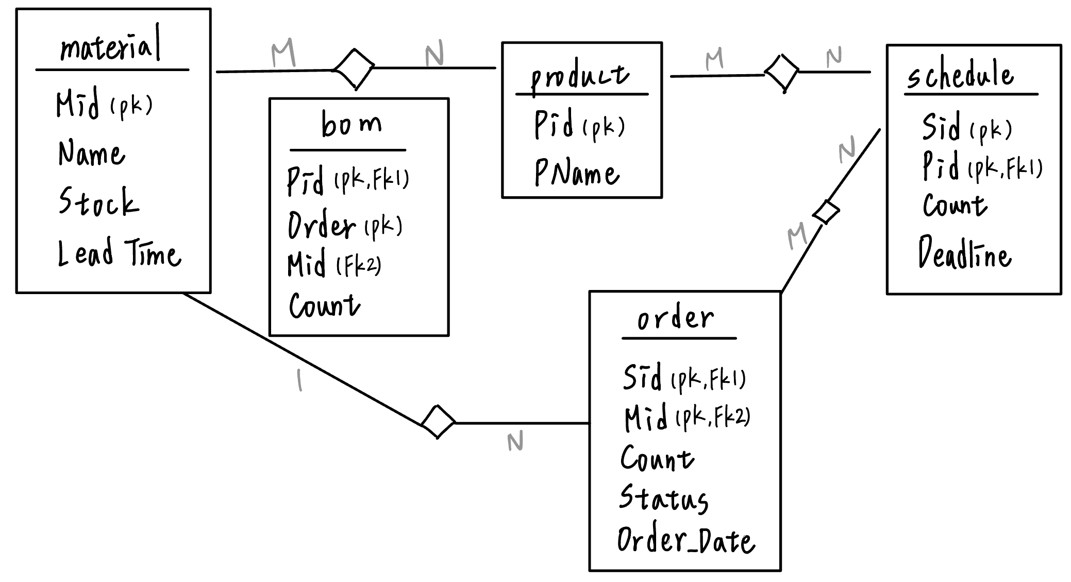 material
Mid (pk)
Name
Stock
Lead Time
M
N
bom
Pid (pk,Fk1)
Order (pk)
Mid (Fk2)
Count
product
Pid (pk)
PName
M
N
schedule
Sid (pk)
Pid (pk,Fk1)
Count
Deadline
N
M
order
Sid (pk,Fk1)
Mid (pk,Fk2)
Count
Status
Order_Date
1
N